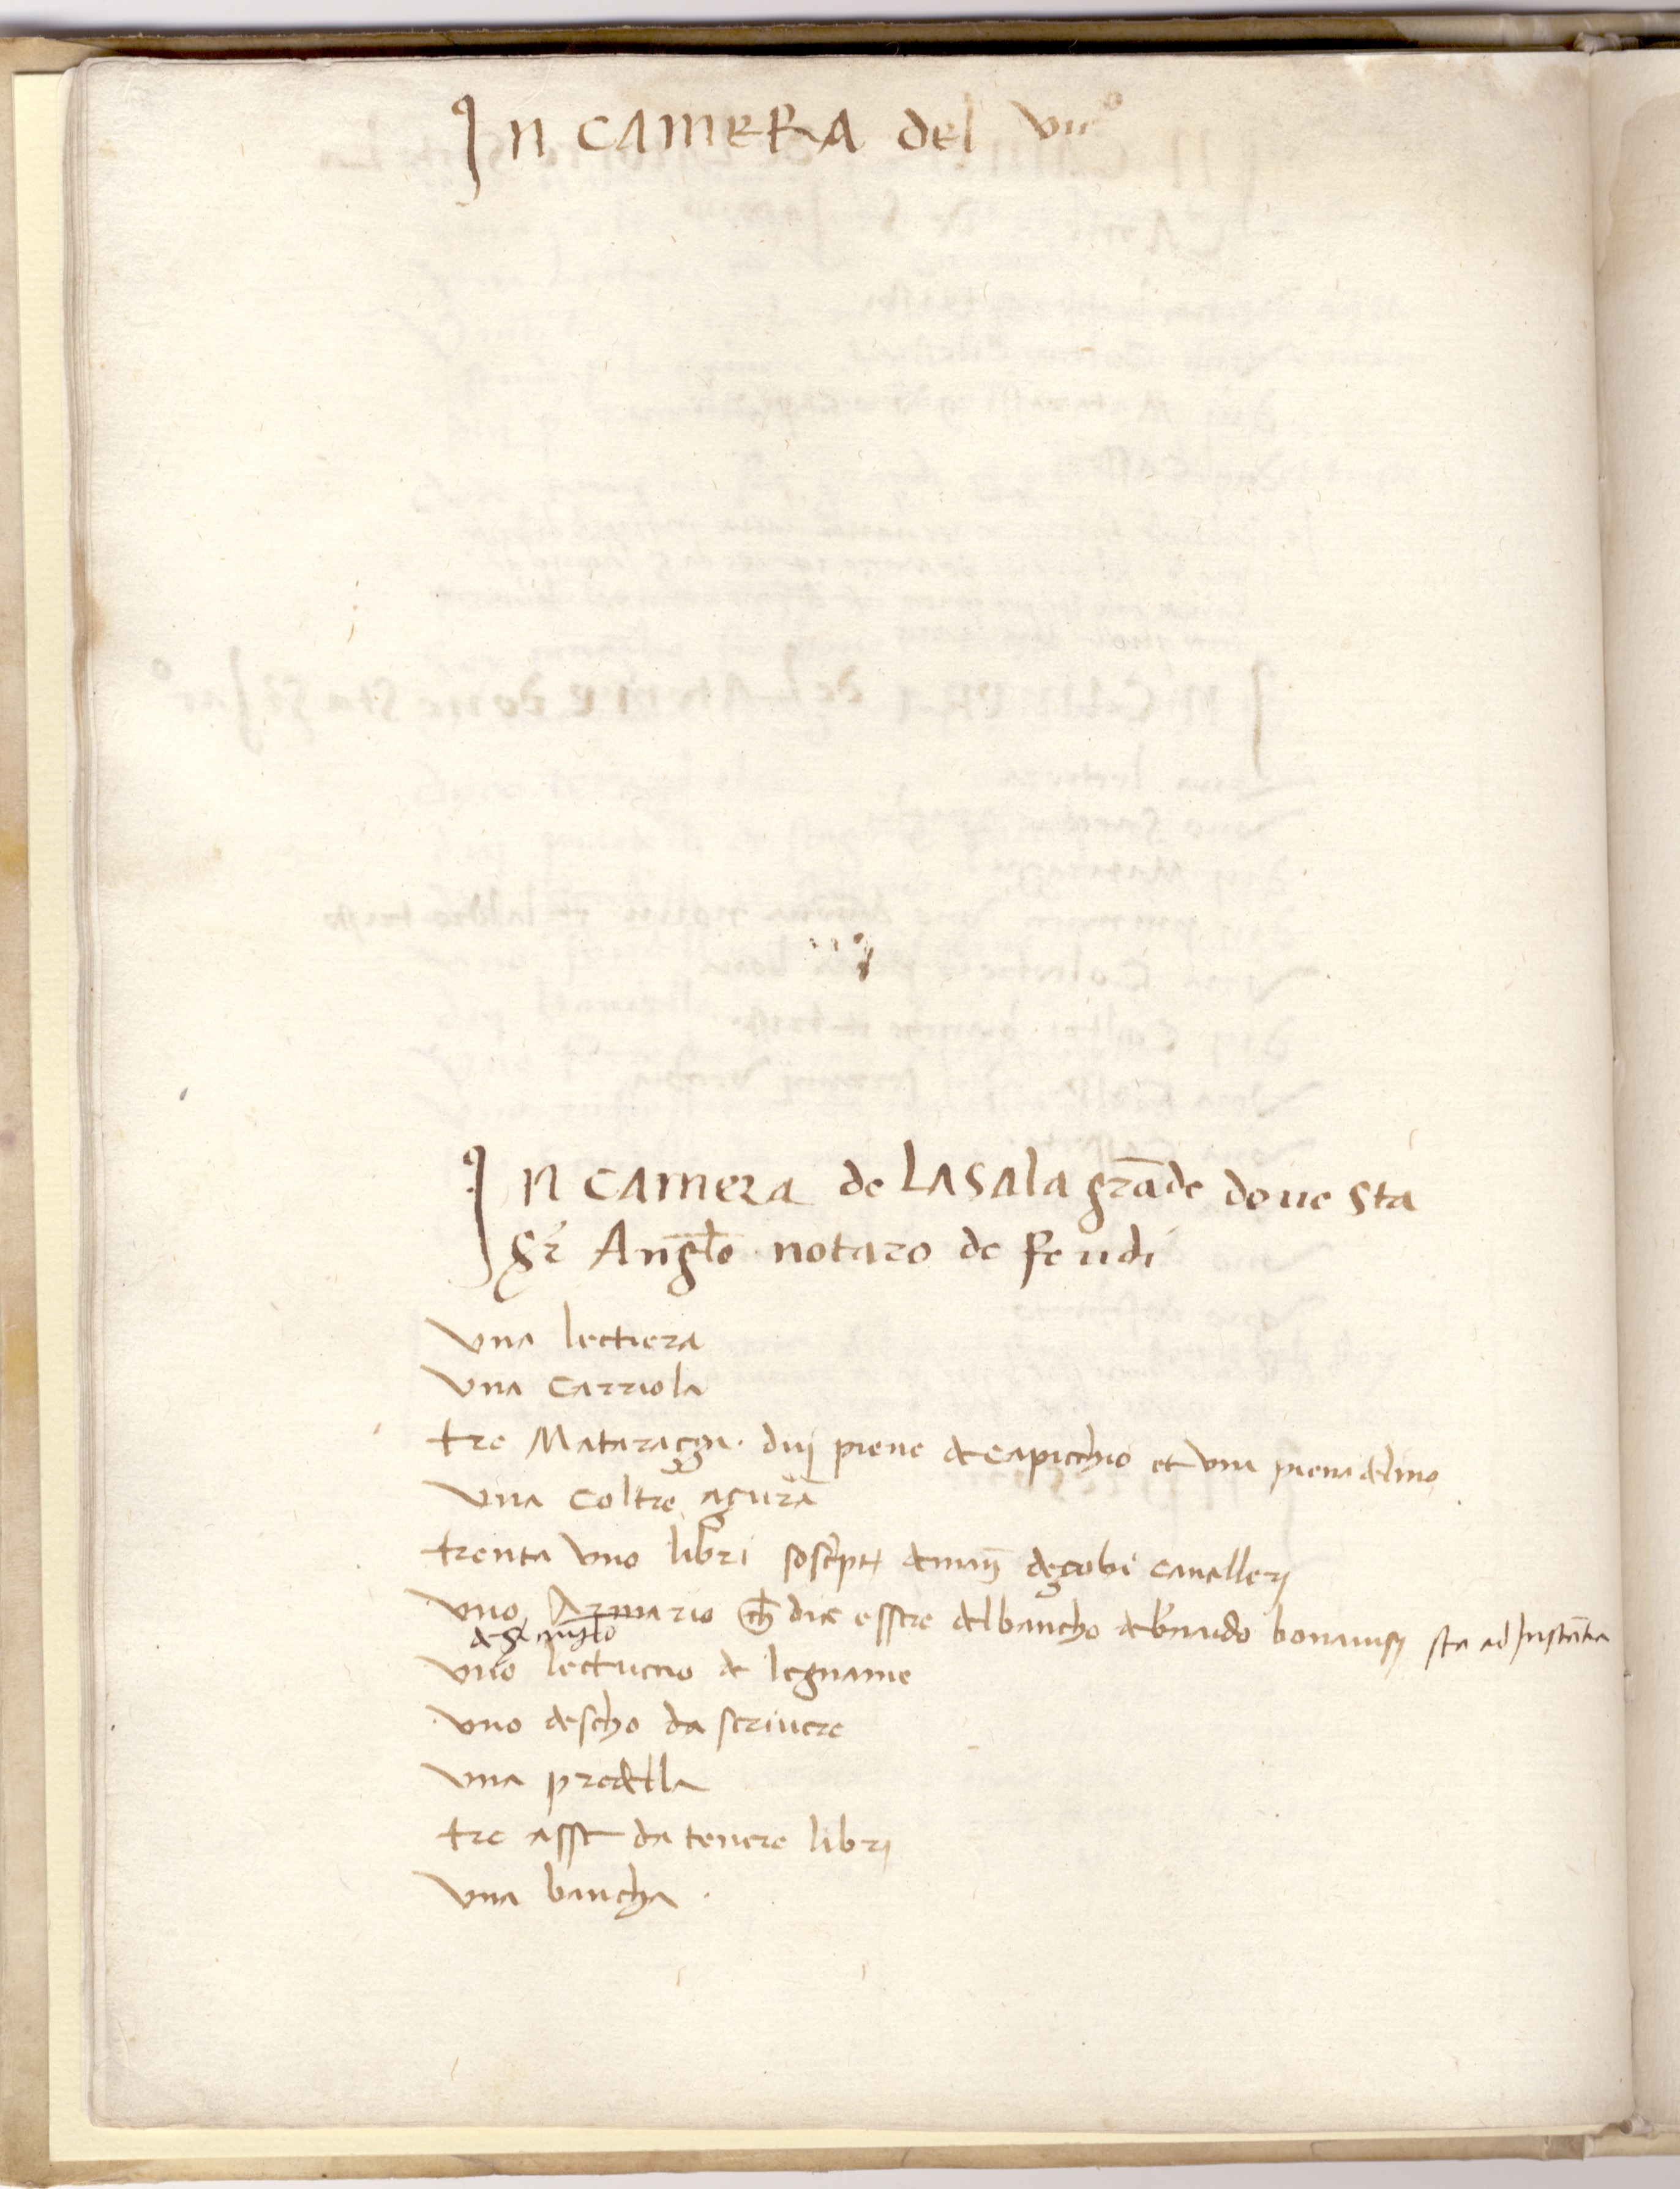 In camera del vic°
In camera de la sala grāde doue sta
sr Anglo notaro de feudi
Vna lectiera
Vna carriola
tre Mataraçij. duj piene de capicchio et vna piena de lino
Vna coltre açurā
trenta vno libri soscript demāo de çobi caualerj
Vno Armario ch dice essere del bancho de b'nardo bonauisj sta ad Instātia
de sr anglo
Vno lectuccio de legname
Vno descho da scriuere
Vna predella
tre asse da tenere librj
Vna bancha.